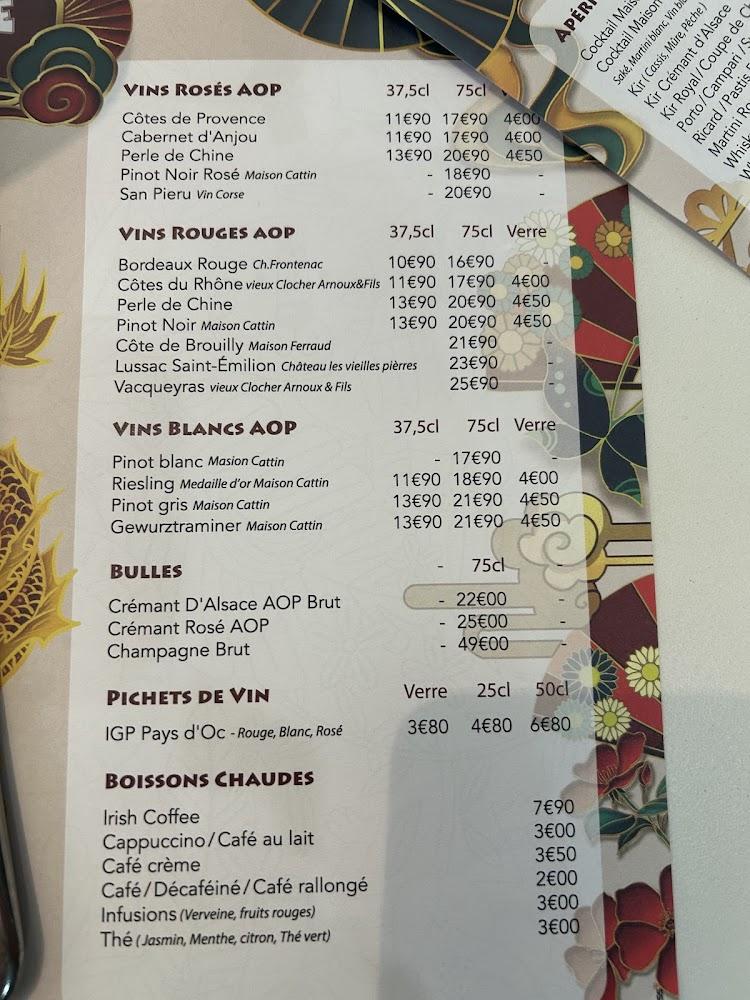 VINS ROSÉS AOP 37,5cl 75cl
Côtes de Provence 11€90 17€90 4€00
Cabernet d'Anjou 11€90 17€90 4€00
Perle de Chine 13€90 20€90 4€50
Pinot Noir Rosé Maison Cattin - 18€90 -
San Pieru Vin Corse - 20€90 -
VINS ROUGES AOP 37,5cl 75cl Verre
Bordeaux Rouge Ch.Frontenac 10€90 16€90 -
Côtes du Rhône vieux Clocher Arnoux&Fils 11€90 17€90 4€00
Perle de Chine 13€90 20€90 4€50
Pinot Noir Maison Cattin 13€90 20€90 4€50
Côte de Brouilly Maison Ferraud 21€90 -
Lussac Saint-Émilion Château les vieilles pièrres 23€90 -
Vacqueyras vieux Clocher Arnoux & Fils 25€90 -
VINS BLANCS AOP 37,5cl 75cl Verre
Pinot blanc Masion Cattin - 17€90 -
Riesling Medaille d'or Maison Cattin 11€90 18€90 4€00
Pinot gris Maison Cattin 13€90 21€90 4€50
Gewurztraminer Maison Cattin 13€90 21€90 4€50
BULLES - 75cl -
Crémant D'Alsace AOP Brut - 22€00 -
Crémant Rosé AOP - 25€00 -
Champagne Brut - 49€00 -
PICHETS DE VIN Verre 25cl 50cl
IGP Pays d'Oc - Rouge, Blanc, Rosé 3€80 4€80 6€80
BOISSONS CHAUDES
Irish Coffee 7€90
Cappuccino/Café au lait 3€00
Café crème 3€50
Café/Décaféiné/Café rallongé 2€00
Infusions (Verveine, fruits rouges) 3€00
Thé (Jasmin, Menthe, citron, Thé vert) 3€00
Cocktail Maison
Saké, Martini blanc,
Kir (Cassis, Mûre, Pêche)
Kir Crémant d'Alsace
Kir Royal/Coupe de
Porto/Campari
Ricard/Pastis
Martini